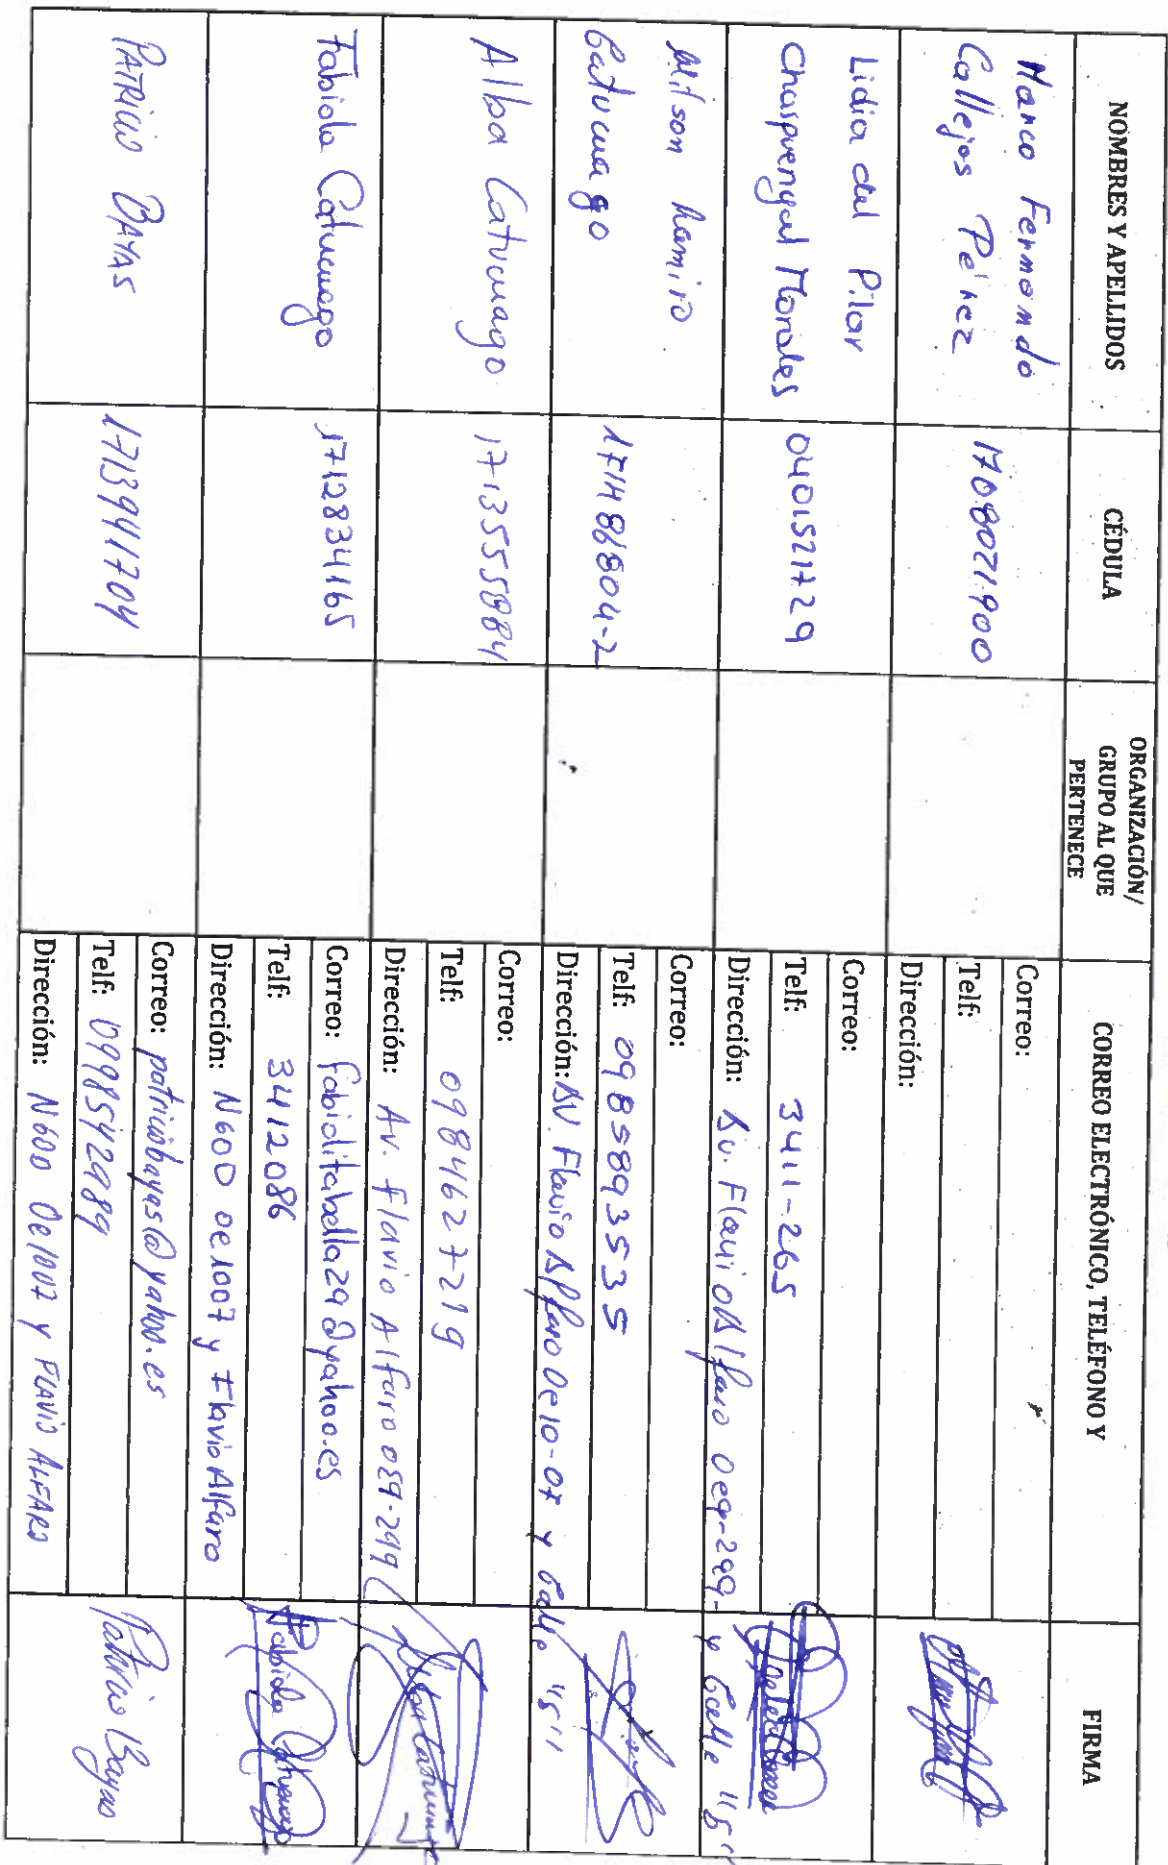 NOMBRES Y APELLIDOS
CÉDULA
ORGANIZACIÓN/
GRUPO AL QUE
PERTENECE
CORREO ELECTRÓNICO, TELÉFONO Y
FIRMA
Marco Fernando
Callejas Pérez
1708021900
Correo:
Telf:
Dirección:
Lidia del Pilar
Chaspuengal Morales
0401521729
Correo:
Telf: 3411-265
Dirección: Av. Flavio Alfaro Oe9-299 y Calle "S"
Wilson Ramiro
Catucuago
171486804-2
Correo:
Telf: 0985893535
Dirección: AV. Flavio Alfaro Oe10-07 y Calle "S"
Alba Catucuago
1713555884
Correo:
Telf: 0984627219
Dirección: Av. Flavio Alfaro OE9-299
Fabiola Catucuago
1712834165
Correo: fabiolitabella29@yahoo.es
Telf: 3412086
Dirección: N60D Oe1007 y Flavio Alfaro
Fabiola Catucuago
PATRICIO BAYAS
1713941704
Correo: patriciobayas@yahoo.es
Telf: 0998542989
Dirección: N60D Oe1007 y FLAVIO ALFARO
Patricio Bayas